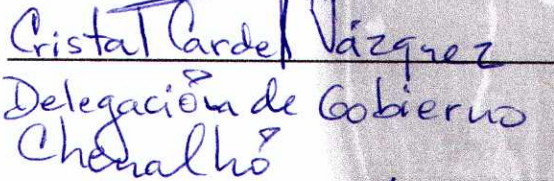 Cristal Cardel Vázquez
Delegación de Gobierno
Chenalhó